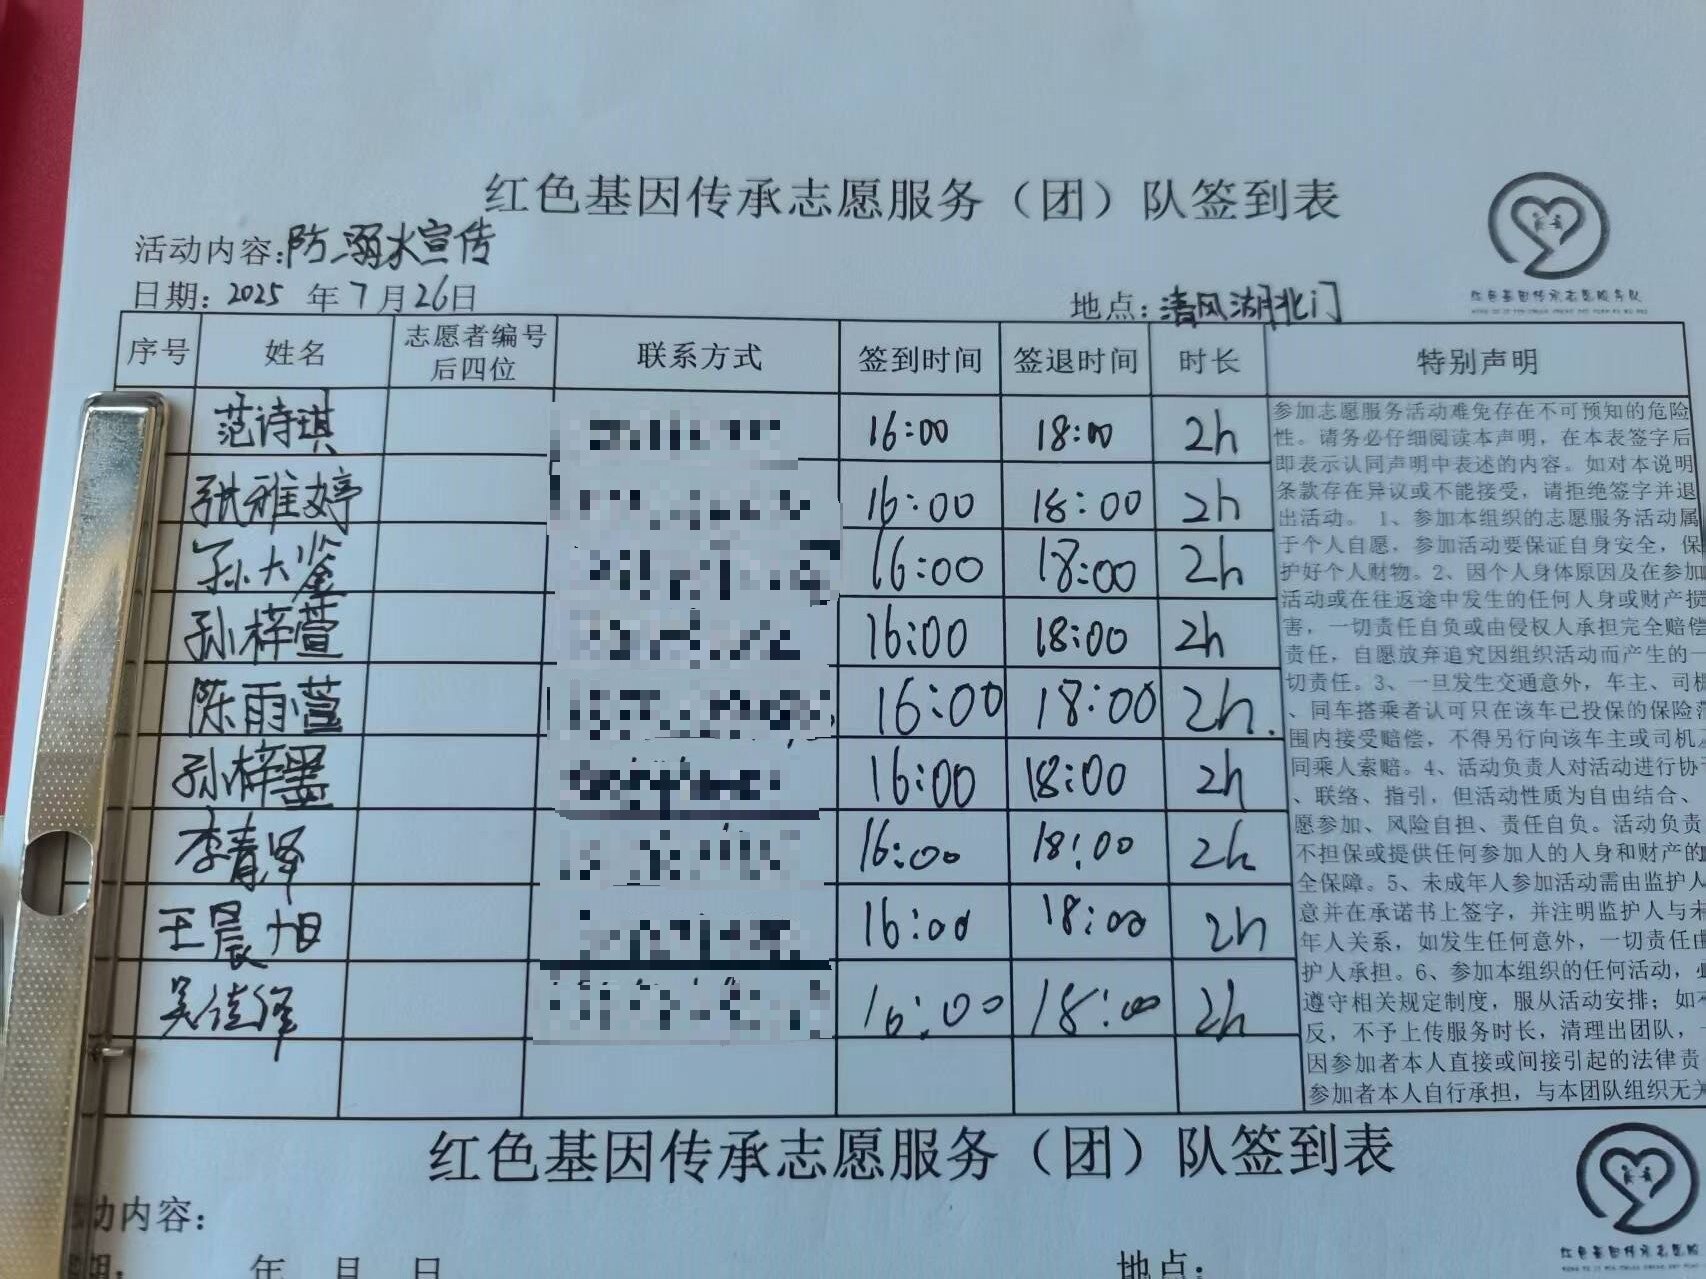 红色基因传承志愿服务（团）队签到表
活动内容:防溺水宣传
日期: 2025 年 7 月 26日 地点: 清风湖北门
红色基因传承志愿服务队
序号 姓名 志愿者编号后四位 联系方式 签到时间 签退时间 时长 特别声明
范诗琪 16:00 18:00 2h
张雅婷 16:00 18:00 2h
孙大鉴 16:00 18:00 2h
孙梓萱 16:00 18:00 2h
陈雨萱 16:00 18:00 2h.
孙梓墨 16:00 18:00 2h
李青泽 16:00 18:00 2h
王晨旭 16:00 18:00 2h
吴佳泽 16:00 18:00 2h
参加志愿服务活动难免存在不可预知的危险
性。请务必仔细阅读本声明，在本表签字后
即表示认同声明中表述的内容。如对本说明
条款存在异议或不能接受，请拒绝签字并退
出活动。 1、参加本组织的志愿服务活动属
于个人自愿，参加活动要保证自身安全，保
护好个人财物。2、因个人身体原因及在参加
活动或在往返途中发生的任何人身或财产损
害，一切责任自负或由侵权人承担完全赔偿
责任，自愿放弃追究因组织活动而产生的一
切责任。3、一旦发生交通意外，车主、司机
、同车搭乘者认可只在该车已投保的保险范
围内接受赔偿，不得另行向该车主或司机及
同乘人索赔。4、活动负责人对活动进行协
、联络、指引，但活动性质为自由结合、
愿参加、风险自担、责任自负。活动负责
不担保或提供任何参加人的人身和财产的
全保障。5、未成年人参加活动需由监护人
意并在承诺书上签字，并注明监护人与未
年人关系，如发生任何意外，一切责任由
护人承担。6、参加本组织的任何活动，必
遵守相关规定制度，服从活动安排；如不
反，不予上传服务时长，清理出团队，
因参加者本人直接或间接引起的法律责
参加者本人自行承担，与本团队组织无关
红色基因传承志愿服务（团）队签到表
动内容:
年 月 日 地点:
红色基因传承志愿服务队